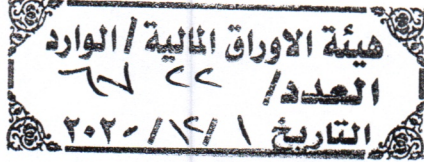 هيئة الاوراق المالية / الوارد
العدد /
التاريخ ١ / ١٢ / ٢٠٢٠